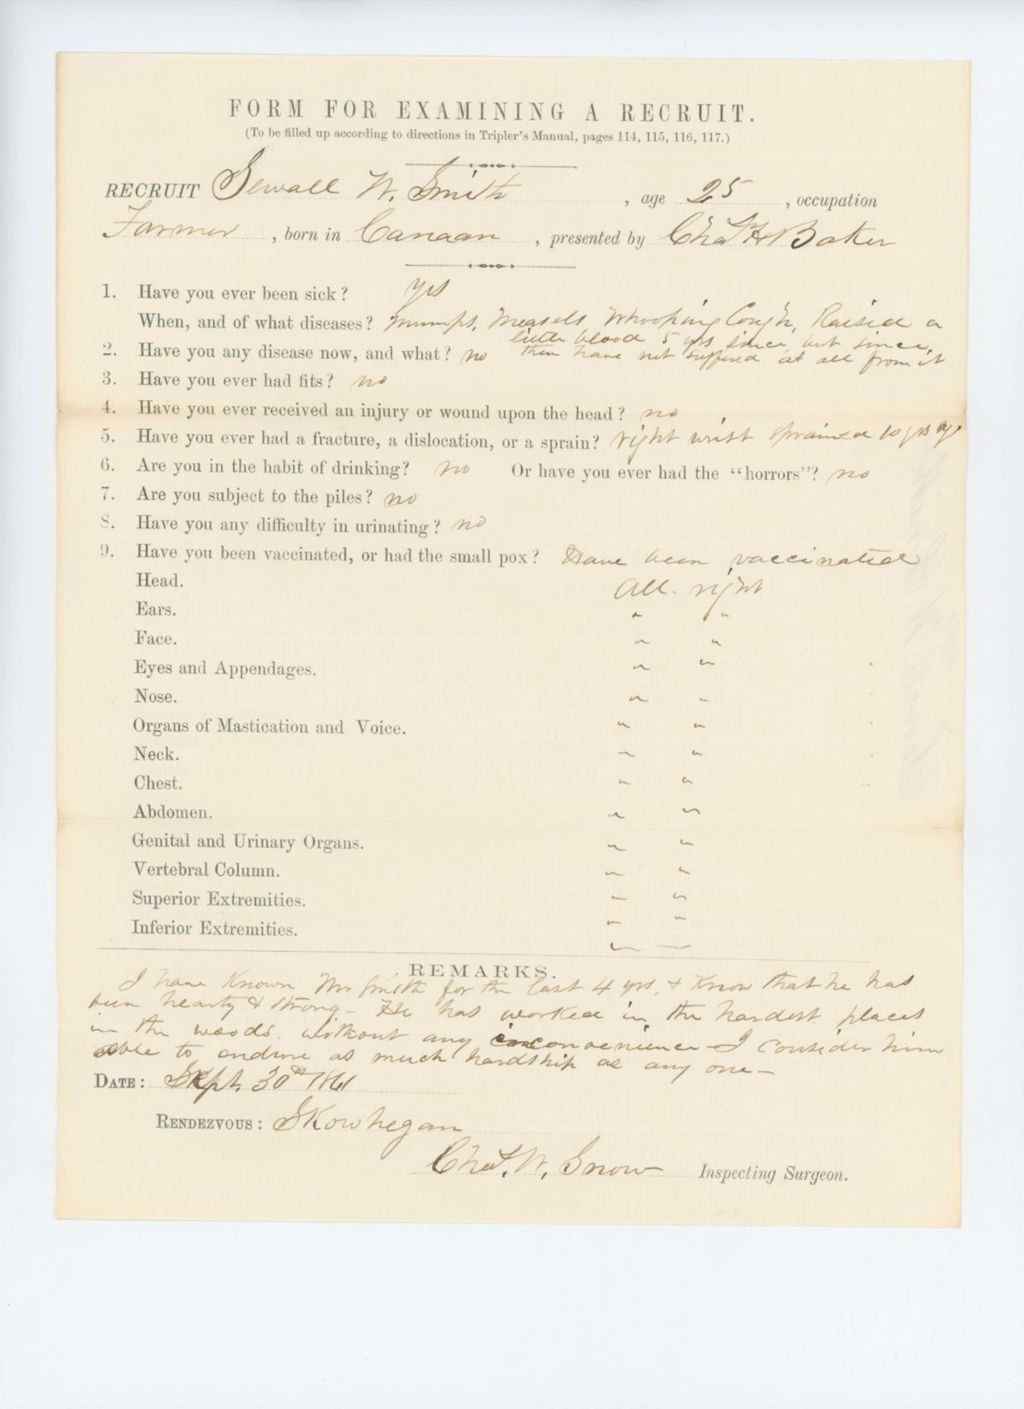 FORM FOR EXAMINING A RECRUIT.
(To be filled up according to directions in Tripler's Manual, pages 114, 115, 116, 117.)
RECRUIT Sewall W. Smith, age 25, occupation
Farmer, born in Canaan, presented by Chas H Baker
1. Have you ever been sick? yes
When, and of what diseases? Mumps, Measels Whooping Cough, Raised a
little blood 5 yrs since but since
2. Have you any disease now, and what? no then have not suffered at all from it
3. Have you ever had fits? no
4. Have you ever received an injury or wound upon the head? no
5. Have you ever had a fracture, a dislocation, or a sprain? right wrist sprained 10 yrs ago
6. Are you in the habit of drinking? no Or have you ever had the "horrors"? no
7. Are you subject to the piles? no
8. Have you any difficulty in urinating? no
9. Have you been vaccinated, or had the small pox? Have been vaccinated
Head. All right
Ears. " "
Face. " "
Eyes and Appendages. " "
Nose. " "
Organs of Mastication and Voice. " "
Neck. " "
Chest. " "
Abdomen. " "
Genital and Urinary Organs. " "
Vertebral Column. " "
Superior Extremities. " "
Inferior Extremities. " "
REMARKS.
I have Known Mr Smith for the last 4 yrs, & Know that he has
been hearty & strong - He has worked in the hardest places
in the woods, without any inconvenience - I consider him
able to endure as much hardship as any one -
DATE: Sept 30th 1861
RENDEZVOUS: Skowhegan
Chas. W. Snow Inspecting Surgeon.